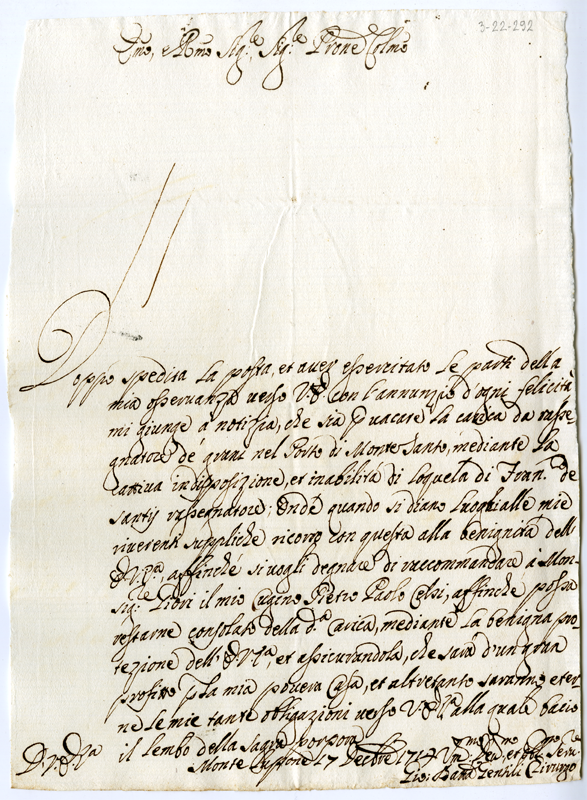 3-22-292
Emo, e Rmo Sig.re Sig.re Prone Colmo
Doppo spedita la posta, et aver essercitato le parti della
mia osservanza verso V.E. con l'annunzio d'ogni felicità
mi giunge à notizia, che sia p vacare la carica da rasse
gnatore de' grani nel Porto di Monte Santo, mediante la
cattiva indisposizione, et inabilità di loquela di Fran.co de
Santij rassegnatore; Onde quando si diano luoghi alle mie
riverenti suppliche ricorro con questa alla benignità dell'
E.V.ra, affinche si vogli degnare di raccommandare à Mon-
sig.re il mio Cugino Pietro Paolo Celsi, affinche possa
restarne consolato della d.a Carica, mediante la benigna pro
tezione dell'E.V.ra et assicurandola, che sarà d'un gran
profitto p la mia povera Casa, et altretanto saranno eter
ne le mie tante obligazioni verso V.E. alla quale bacio
il lembo della Sagra Porpora
D.V.E.
Monte 17 Decbre
Gentili Cirurgo